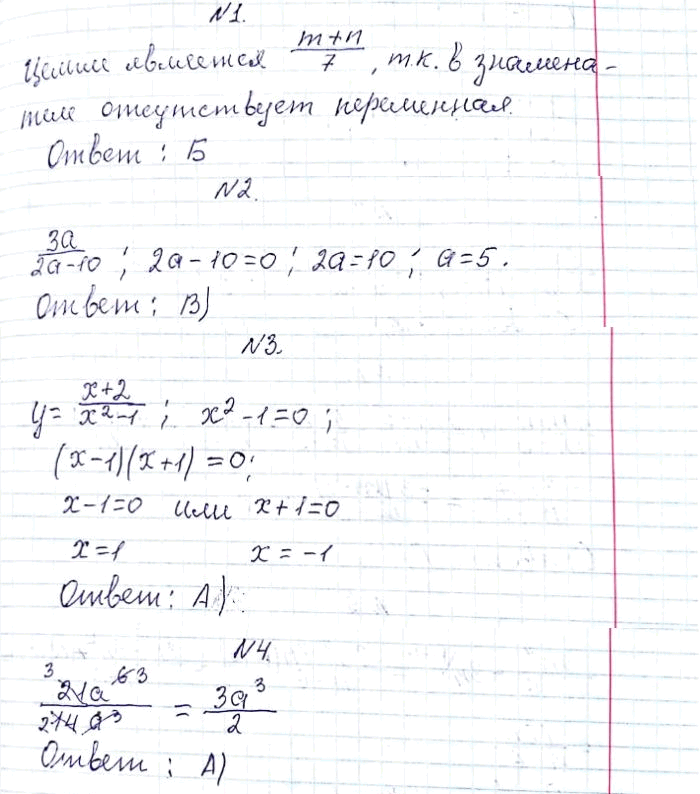 N1.
Целым является (m+n)/7, т.к. в знамена-
теле отсутствует переменная.
Ответ: Б
N2.
3a/(2a-10); 2a-10=0; 2a=10; a=5.
Ответ: В)
N3.
y= (x+2)/(x²-1); x²-1=0;
(x-1)(x+1)=0;
x-1=0 или x+1=0
x=1 x=-1
Ответ: А)
N4.
³21a⁶ ³/₂14a³ = 3a³/2
Ответ: А)